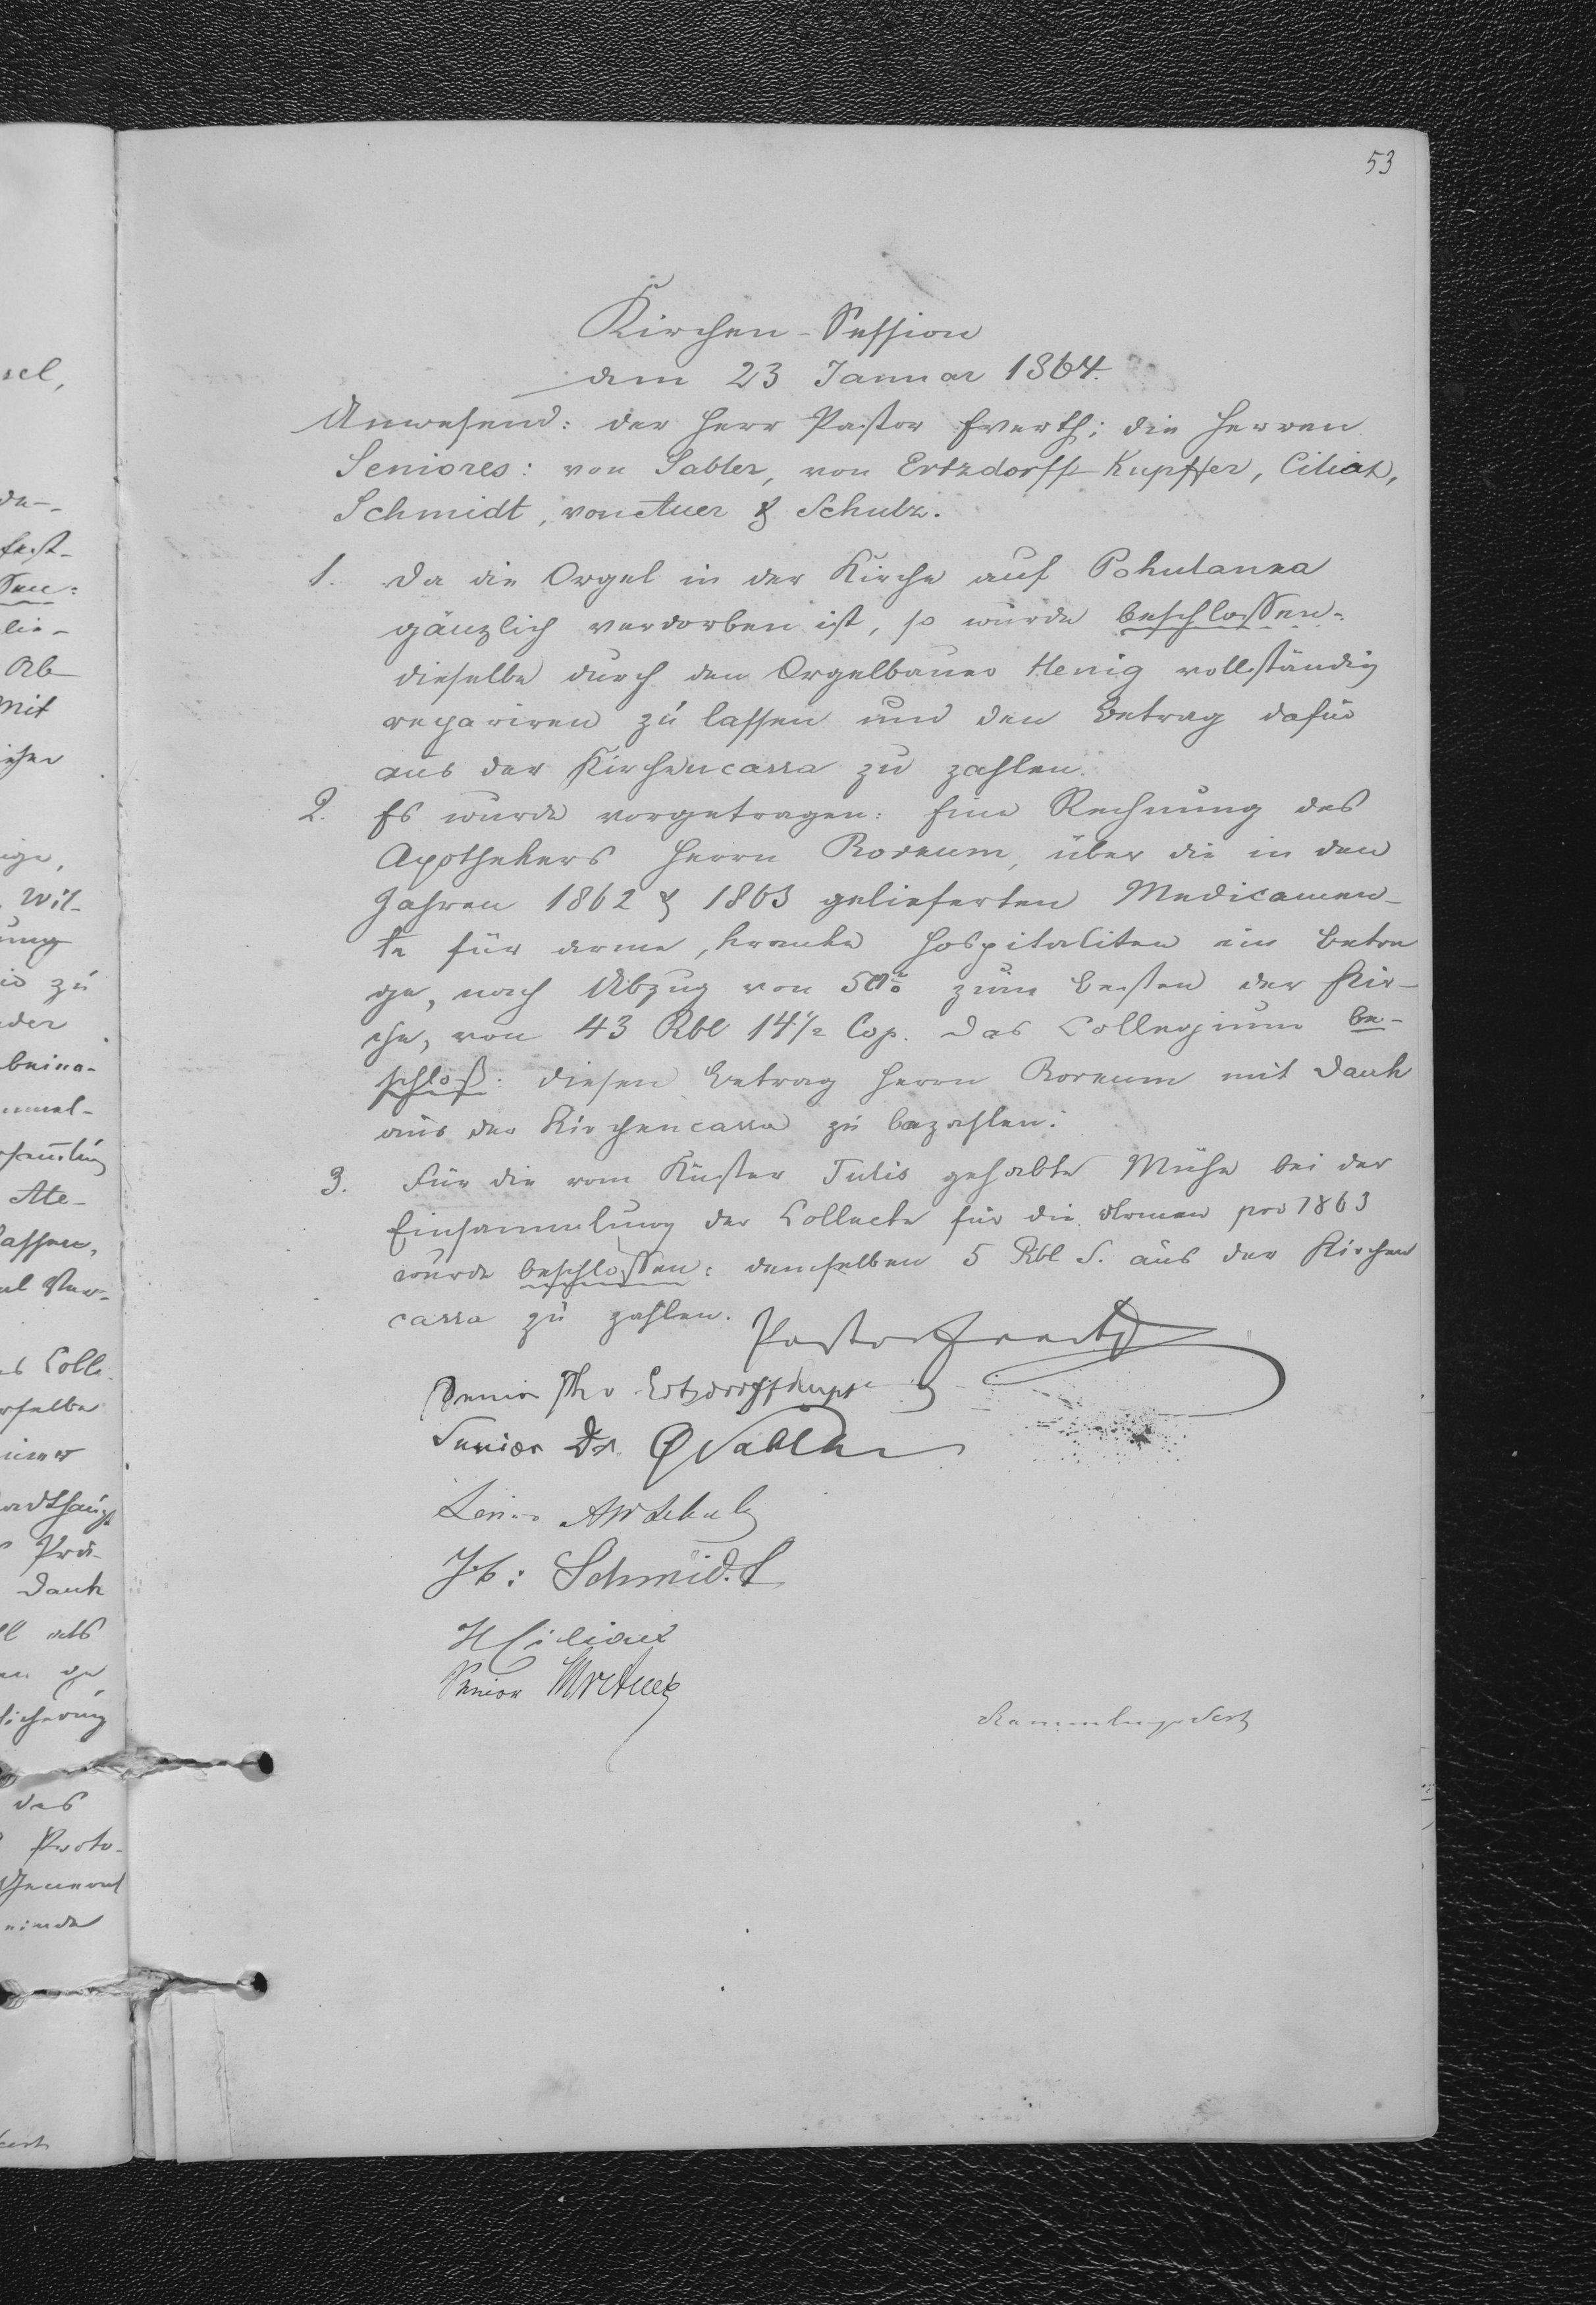 53
Kirchen-Session
dem 23 Januar 1864.
Anwesend: der Herr Pastor Everth; die Herren
Seniores: von Sabler, von Ertzdorff-Kupffer, Ciliax,
Schmidt, von Auer & Schulz.
1. Da die Orgel in der Kirche auf Pohulanka
gänzlich verdorben ist, so wurde beschlossen:
dieselbe durch den Orgelbauer Henig vollständig
repariren zu lassen und den Betrag dafür
aus der Kirchencassa zu zahlen.
2. Es wurde vorgetragen: Eine Rechnung des
Apothekers Herrn über die in den
Jahren 1862 & 1863 gelieferten Medicamen-
te für arme, kranke Hospitaliten im Betra
ge, nach Abzug von 50% zum Besten der Kir-
che, von 43 Rbl 14½ Cop. Das Collegium be-
schloß: diesen Betrag Herrn mit Dank
aus der Kirchencassa zu bezahlen.
3. Für die vom Küster Tulis gehabte Mühe bei der
Einsammlung der Collecte für die Armen pro 1863
wurde beschlossen: demselben 5 Rbl S. aus der Kirchen
cassa zu zahlen.
Pastor Everth
Senior Ertzdorff Kupffer
Senior Dr. Sabler
Senior Schulz
Schmidt
H Ciliax
Senior